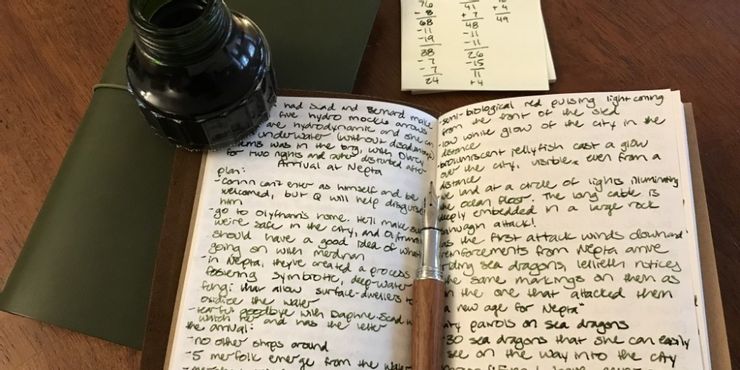 76
- 8
68
- 11
- 19
38
- 7
- 7
24
41
+ 7
48
- 11
- 11
26
- 15
11
+ 4
+ 4
49
had Suad and Bernard make
five hydro mocks arrows
are hydrodynamic and she can
underwater (without disadvantage)
items was in the bog, with Darcy
for two nights and
Arrival at Nepta
plan:
- Corrin can't enter as himself and be
welcomed, but Q will help disguise
him
- go to Olyfhann's home. He'll make sure
we're safe in the city, and Olfhann
should have a good idea of what's
going on with
- in Nepta, they've created a process
fostering symbiotic, deep-water
fungi that allow surface-dwellers to
oxidize the water
- tearful goodbye with Daphne. Suad will
watch her and has the letter
the arrival:
- no other ships around
- 5 merfolk emerge from the water
- semi-biological red pulsing light coming
from the front of the sled
- low white glow of the city in the
distance
jellyfish cast a glow
over the city, visible even from a
distance
we land at a circle of lights illuminating
the ocean floor. The long cable is
deeply embedded in a large rock
attack!
as the first attack winds downward
reinforcements from Nepta arrive
riding sea dragons, lellieth notices
the same markings on them as
on the one that attacked them
a new age for Nepta
city patrols on sea dragons
30 sea dragons that she can easily
see on the way into the city